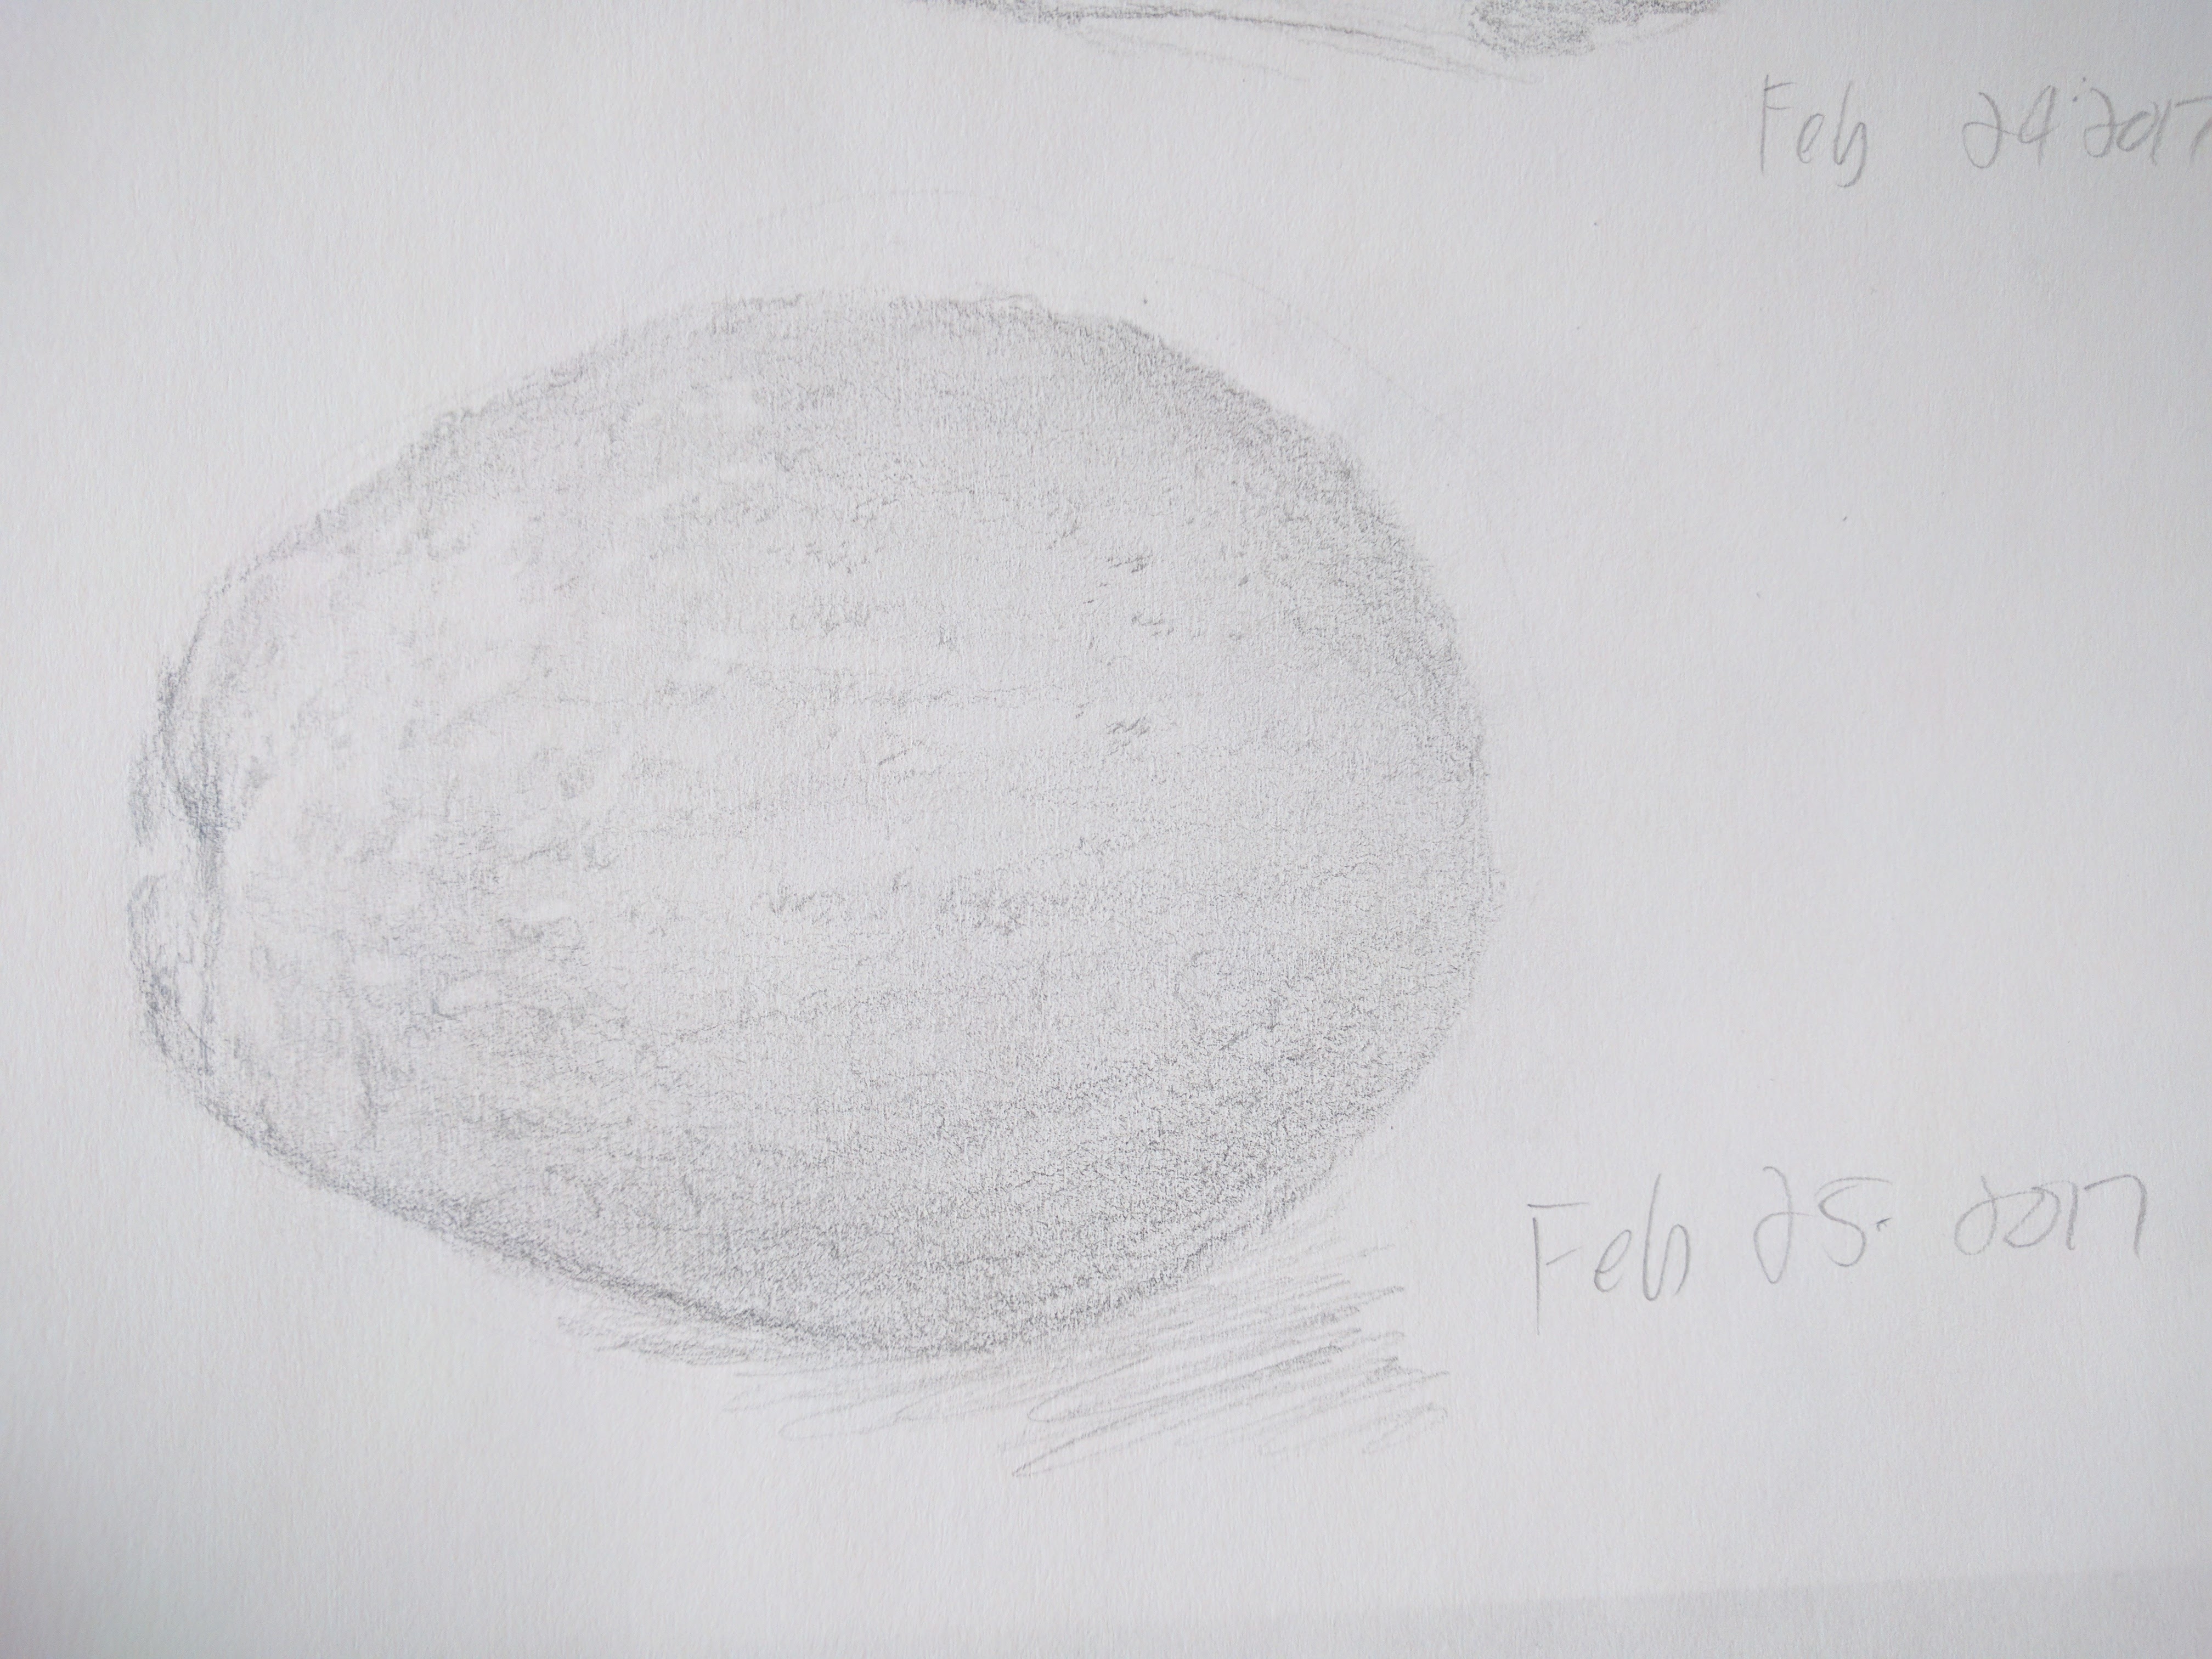 Feb 24 2017
Feb 25. 2017